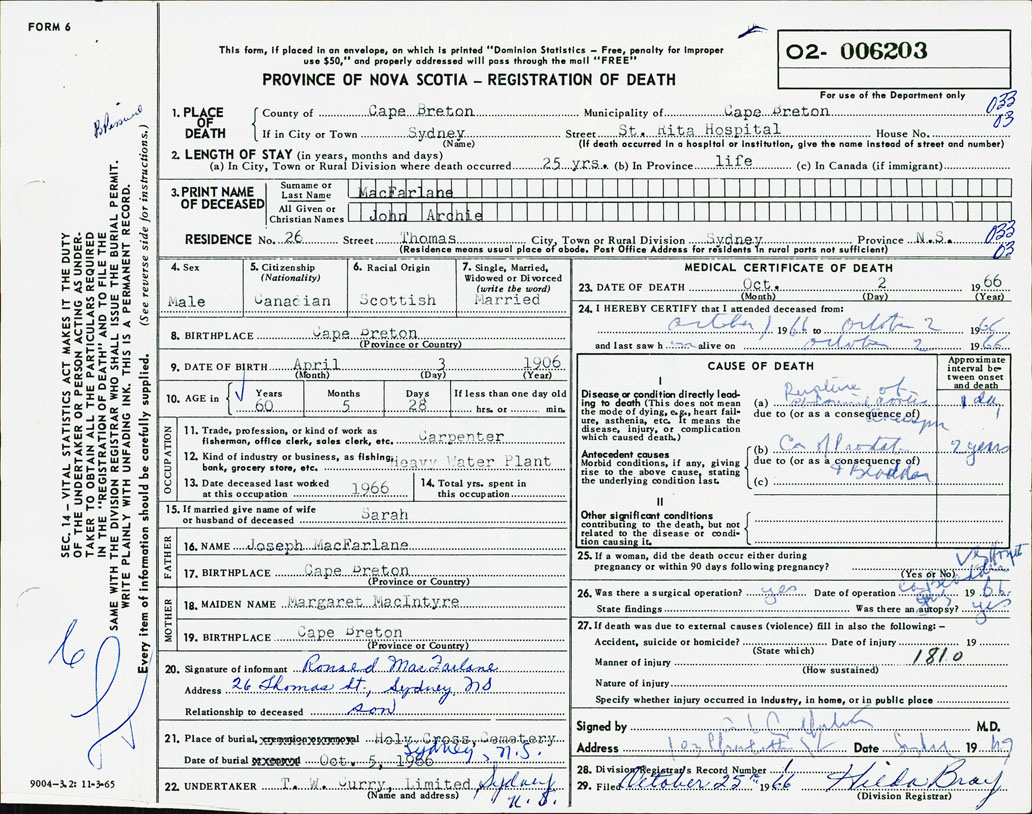 FORM 6
This form, if placed in an envelope, on which is printed "Dominion Statistics – Free, penalty for improper
use $50," and properly addressed will pass through the mail "FREE"
O2- 006203
PROVINCE OF NOVA SCOTIA – REGISTRATION OF DEATH
For use of the Department only
1. PLACE OF DEATH
County of Cape Breton Municipality of Cape Breton 033
03
If in City or Town Sydney Street St. Rita Hospital House No.
(Name) (If death occurred in a hospital or institution, give the name instead of street and number)
2. LENGTH OF STAY (in years, months and days)
(a) In City, Town or Rural Division where death occurred 25 yrs. (b) In Province life (c) In Canada (if immigrant)
3. PRINT NAME OF DECEASED
Surname or Last Name MacFarlane
All Given or Christian Names John Archie
RESIDENCE No. 26 Street Thomas City, Town or Rural Division Sydney Province N.S. 033
03
(Residence means usual place of abode. Post Office Address for residents in rural parts not sufficient)
4. Sex Male
5. Citizenship (Nationality) Canadian
6. Racial Origin Scottish
7. Single, Married, Widowed or Divorced (write the word) Married
8. BIRTHPLACE Cape Breton
(Province or Country)
9. DATE OF BIRTH April 3 1906
(Month) (Day) (Year)
10. AGE in Years 60 Months 5 Days 28 If less than one day old hrs. or min.
OCCUPATION
11. Trade, profession, or kind of work as
fisherman, office clerk, sales clerk, etc. Carpenter
12. Kind of industry or business, as fishing,
bank, grocery store, etc. Heavy Water Plant
13. Date deceased last worked
at this occupation 1966
14. Total yrs. spent in
this occupation
15. If married give name of wife
or husband of deceased Sarah
FATHER
16. NAME Joseph MacFarlane
17. BIRTHPLACE Cape Breton
(Province or Country)
MOTHER
18. MAIDEN NAME Margaret MacIntyre
19. BIRTHPLACE Cape Breton
(Province or Country)
20. Signature of informant Ronald MacFarlane
Address 26 Thomas St., Sydney, NS
Relationship to deceased son
21. Place of burial, cremation or removal Holy Cross Cemetery
Sydney, N.S.
Date of burial Oct. 5, 1966
22. UNDERTAKER T. W. Curry, Limited Sydney
N.S.
(Name and address)
MEDICAL CERTIFICATE OF DEATH
23. DATE OF DEATH Oct. 2 1966
(Month) (Day) (Year)
24. I HEREBY CERTIFY that I attended deceased from:
October 1 1966 to October 2 1966
and last saw h alive on October 2 1966
CAUSE OF DEATH
Approximate interval between onset and death
I
Disease or condition directly leading to death (This does not mean
the mode of dying, e.g., heart failure, asthenia, etc. It means the
disease, injury, or complication
which caused death.)
(a) Rupture of 1 day
due to (or as a consequence of)
Antecedent causes
Morbid conditions, if any, giving
rise to the above cause, stating
the underlying condition last.
(b) Ca of Prostate 2 years
due to (or as a consequence of)
& Bladder
(c)
II
Other significant conditions
contributing to the death, but not
related to the disease or condition causing it.
25. If a woman, did the death occur either during
pregnancy or within 90 days following pregnancy?
(Yes or No)
26. Was there a surgical operation? yes Date of operation 1966
State findings Was there an autopsy? yes
27. If death was due to external causes (violence) fill in also the following: –
Accident, suicide or homicide? Date of injury 19
(State which)
Manner of injury 1810
(How sustained)
Nature of injury
Specify whether injury occurred in industry, in home, or in public place
Signed by M.D.
Address Date 19
28. Division Registrar's Record Number
29. Filed October 25th 1966 Hilda Bray
(Division Registrar)
SEC. 14 – VITAL STATISTICS ACT MAKES IT THE DUTY
OF THE UNDERTAKER OR PERSON ACTING AS UNDER-
TAKER TO OBTAIN ALL THE PARTICULARS REQUIRED
IN THE "REGISTRATION OF DEATH" AND TO FILE THE
SAME WITH THE DIVISION REGISTRAR WHO SHALL ISSUE THE BURIAL PERMIT.
WRITE PLAINLY WITH UNFADING INK. THIS IS A PERMANENT RECORD.
Every item of information should be carefully supplied. (See reverse side for instructions.)
9004-3.2: 11-3-65